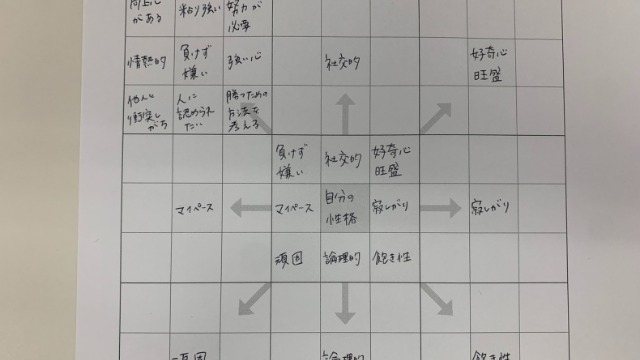 がある
粘り強い
努力が
必要
情熱的
負けず
嫌い
強い心
社交的
好奇心
旺盛
他人と
衝突し
がち
人に
認められ
たい
勝つための
方法を
考える
負けず
嫌い
社交的
好奇心
旺盛
マイペース
マイペース
自分の
性格
寂しがり
寂しがり
頑固
論理的
飽き性
頑固
論理的
飽き性